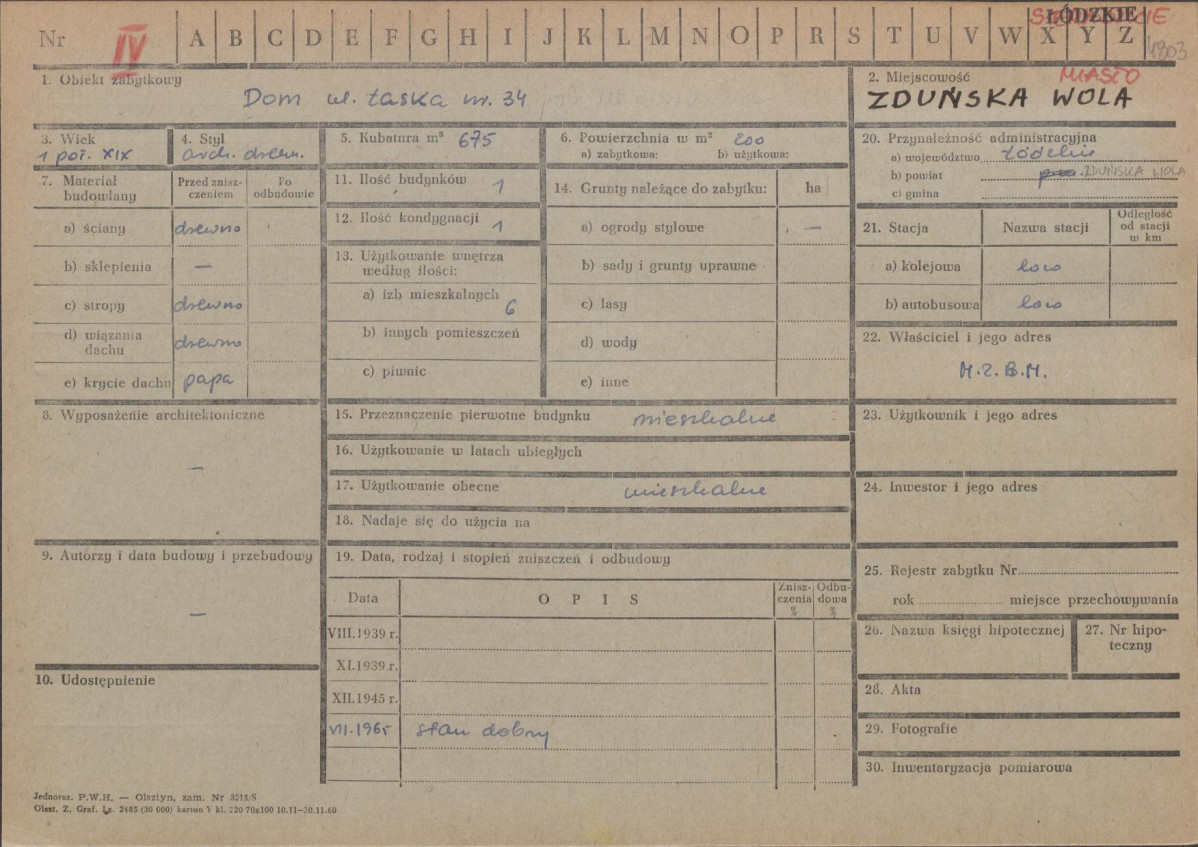 Nr IV A B C D E F G H I J K L M N O P R S T U V W X Y Z
ŁÓDZKIE
4303
1. Obiekt zabytkowy
Dom ul. Łaska nr. 34
2. Miejscowość
MIASTO
ZDUŃSKA WOLA
3. Wiek
1 poł. XIX
4. Styl
arch. drewn.
5. Kubatura m³ 675
6. Powierzchnia w m² 200
a) zabytkowa: b) użytkowa:
20. Przynależność administracyjna
a) województwo Łódzkie
b) powiat ZDUŃSKA WOLA
c) gmina
7. Materiał budowlany
Przed znisz-
czeniem
Po
odbudowie
a) ściany drewno
b) sklepienia —
c) stropy drewno
d) wiązania
dachu drewno
e) krycie dachu papa
11. Ilość budynków 1
12. Ilość kondygnacji 1
13. Użytkowanie wnętrza
według ilości:
a) izb mieszkalnych 6
b) innych pomieszczeń
c) piwnic
14. Grunty należące do zabytku: ha
a) ogrody stylowe —
b) sady i grunty uprawne
c) lasy
d) wody
e) inne
21. Stacja Nazwa stacji
Odległość
od stacji
w km
a) kolejowa loco
b) autobusowa loco
22. Właściciel i jego adres
M.Z.B.M.
8. Wyposażenie architektoniczne
—
15. Przeznaczenie pierwotne budynku mieszkalne
16. Użytkowanie w latach ubiegłych
17. Użytkowanie obecne mieszkalne
18. Nadaje się do użycia na
23. Użytkownik i jego adres
24. Inwestor i jego adres
9. Autorzy i data budowy i przebudowy
—
19. Data, rodzaj i stopień zniszczeń i odbudowy
Data OPIS
Znisz-
czenia
%
Odbu-
dowa
%
VIII.1939 r.
XI.1939 r.
XII.1945 r.
VII.1965 stan dobry
25. Rejestr zabytku Nr
rok miejsce przechowywania
26. Nazwa księgi hipotecznej
27. Nr hipo-
teczny
10. Udostępnienie
28. Akta
29. Fotografie
30. Inwentaryzacja pomiarowa
Jednoraz. P.W.H. — Olsztyn, zam. Nr 3215/S
Olszt. Z. Graf. Lz. 2485 (30 000) karton V kl. 220 70x100 10.11—20.11.60